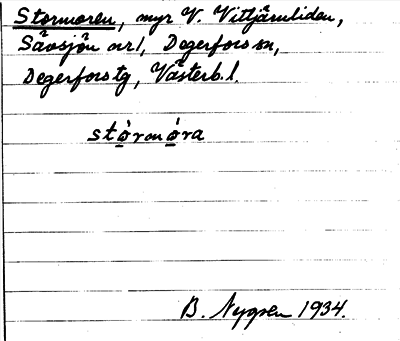 Stormoren, myr V. Vittjärnliden,
Sävsjön nr 1, Degerfors sn,
Degerfors tg, Västerb. l.
stò̱rmó̱ra
B. Nygren 1934.